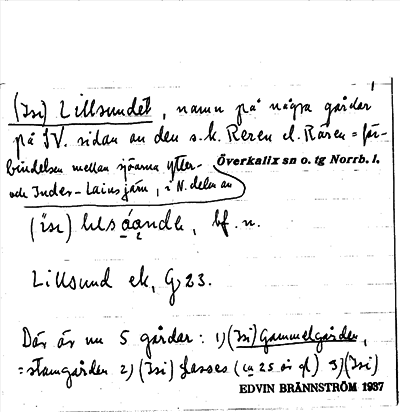 (Isi) Lillsundet, namn på några gårdar
på SV. sidan av den s.k. Reren el. Råren = för-
bindelsen mellan sjöarna Ytter-
Överkalix sn o. tg Norrb. l.
och Inder-Lainsjärv, i N. delen av
(isi) bf. n.
Lillsund ek, G, 23.
Där är nu 5 gårdar: 1) (Isi) Gammelgården,
=stamgården 2) (Isi) Lasses (ca 25 år gl) 3) (Isi)
EDVIN BRÄNNSTRÖM 1937